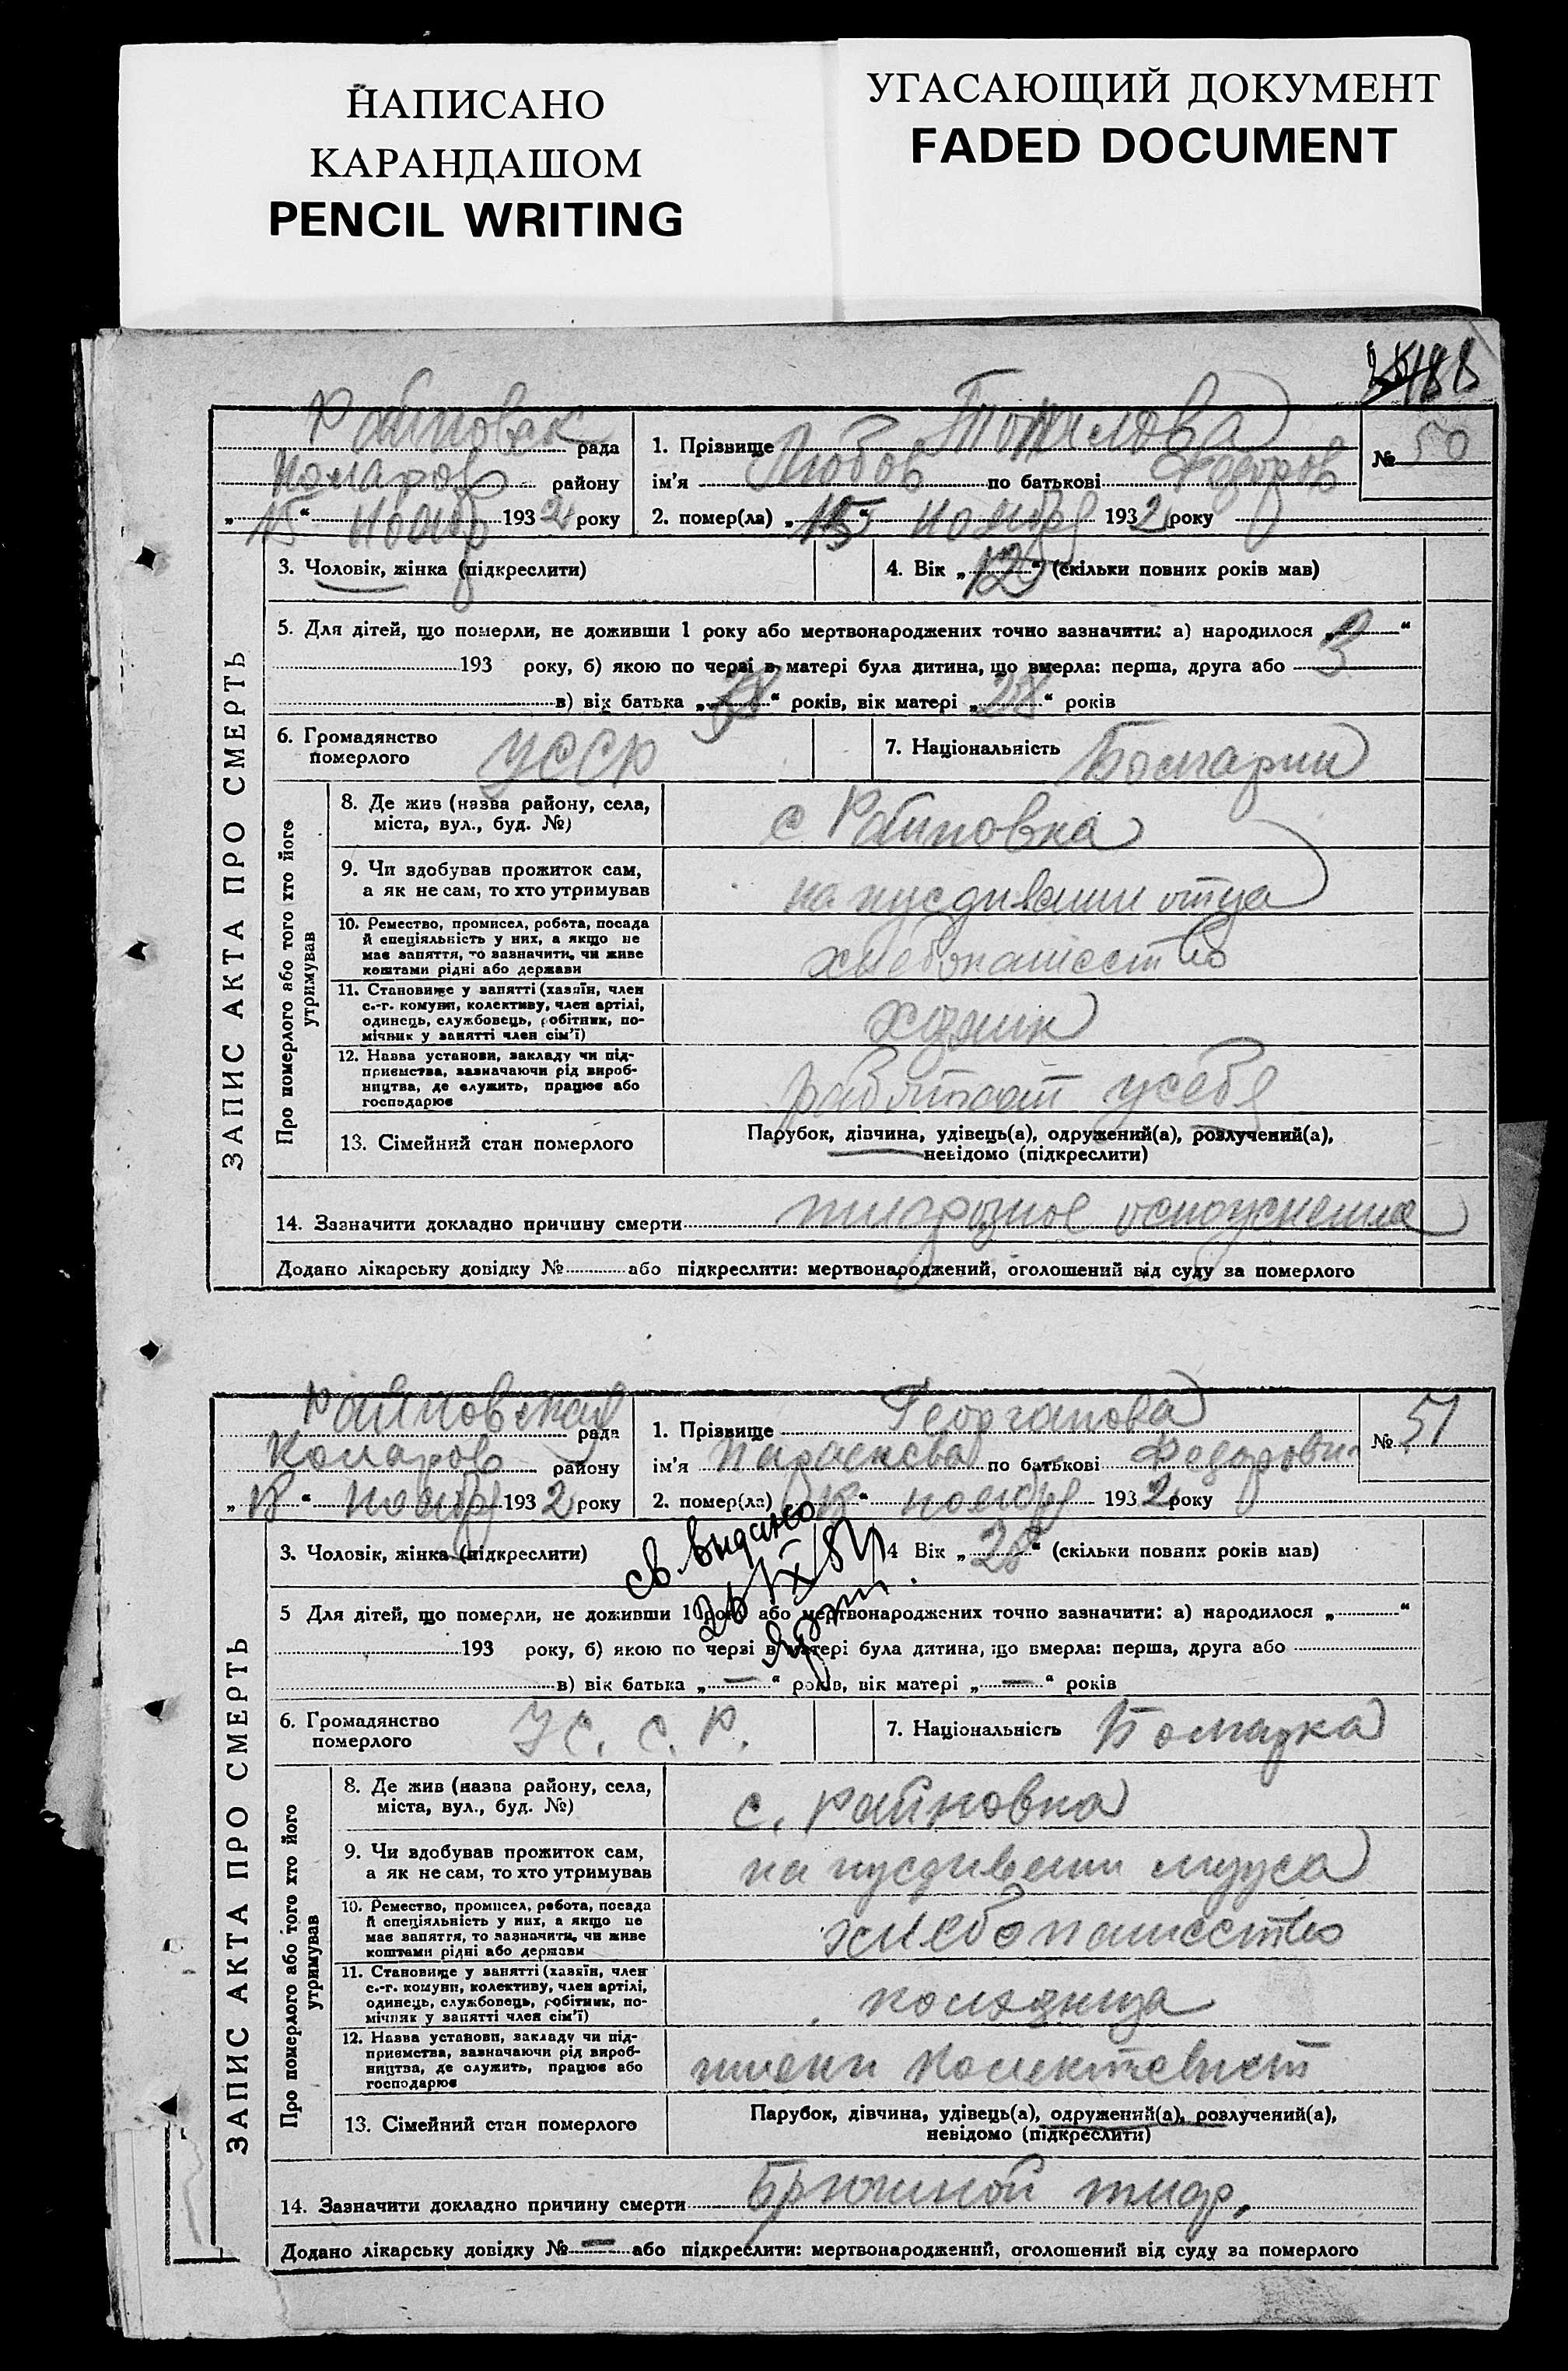 НАПИСАНО
КАРАНДАШОМ
PENCIL WRITING
УГАСАЮЩИЙ ДОКУМЕНТ
FADED DOCUMENT
188
ЗАПИС АКТА ПРО СМЕРТЬ
Райновск рада
Комаров району
„15“ Ноябр 1932 року
1. Прізвище
ім'я Любов по батькові Федоров
№ 50
2. помер(ла) „15“ ноября 1932 року
3. Чоловік, жінка (підкреслити)
4. Вік „12“ (скільки повних років мав)
5. Для дітей, що померли, не доживши 1 року або мертвонароджених точно зазначити: а) народилося „ “
193 року, б) якою по черзі в матері була дитина, що вмерла: перша, друга або 3
в) вік батька „ “ років, вік матері „28“ років
6. Громадянство
померлого
УССР
7. Національність Болгарин
Про померлого або того хто його
утримував
8. Де жив (назва району, села,
міста, вул., буд. №)
с Райновка
9. Чи здобував прожиток сам,
а як не сам, то хто утримував
на иусдивении отца
10. Ремество, промисел, робота, посада
й спеціяльність у них, а якщо не
має заняття, то зазначити, чи живе
коштами рідні або держави
хлебопашество
11. Становище у занятті (хазяїн, член
с.-г. комуни, колективу, член артілі,
одинець, службовець, робітник, по-
мічник у занятті член сім'ї)
хозяин
12. Назва установи, закладу чи під-
приємства, зазначаючи рід вироб-
ництва, де служить, працює або
господарює
работает усебя
13. Сімейний стан померлого
Парубок, дівчина, удівець(а), одружений(а), розлучений(а),
невідомо (підкреслити)
14. Зазначити докладно причину смерти
Додано лікарську довідку № або підкреслити: мертвонароджений, оголошений від суду за померлого
ЗАПИС АКТА ПРО СМЕРТЬ
Райновская рада
Комаров району
„18“ Ноябр 1932 року
1. Прізвище Георганова
ім'я Параскева по батькові Федоровн
№ 51
2. помер(ла) „18“ ноября 1932 року
3. Чоловік, жінка (підкреслити)
св. выдано
26/IX 51
4 Вік „28“ (скільки повних років мав)
5 Для дітей, що померли, не доживши 1 року або мертвонароджених точно зазначити: а) народилося „ “
193 року, б) якою по черзі в матері була дитина, що вмерла: перша, друга або
в) вік батька „—“ років, вік матері „—“ років
6. Громадянство
померлого
У С. С. Р.
7. Національність Болгарка
Про померлого або того хто його
утримував
8. Де жив (назва району, села,
міста, вул., буд. №)
с. Райновка
9. Чи здобував прожиток сам,
а як не сам, то хто утримував
на иусдивении мужа
10. Ремество, промисел, робота, посада
й спеціяльність у них, а якщо не
має заняття, то зазначити, чи живе
коштами рідні або держави
хлебопашество
11. Становище у занятті (хазяїн, член
с.-г. комуни, колективу, член артілі,
одинець, службовець, робітник, по-
мічник у занятті член сім'ї)
колхзница
12. Назва установи, закладу чи під-
приємства, зазначаючи рід вироб-
ництва, де служить, працює або
господарює
имени Колектевист
13. Сімейний стан померлого
Парубок, дівчина, удівець(а), одружений(а), розлучений(а),
невідомо (підкреслити)
14. Зазначити докладно причину смерти Брюшной тиф.
Додано лікарську довідку № — або підкреслити: мертвонароджений, оголошений від суду за померлого